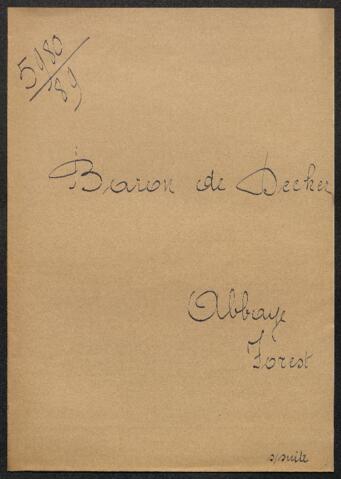 5180
/89
Baron de Decker
Abbaye
Forest
s/suite